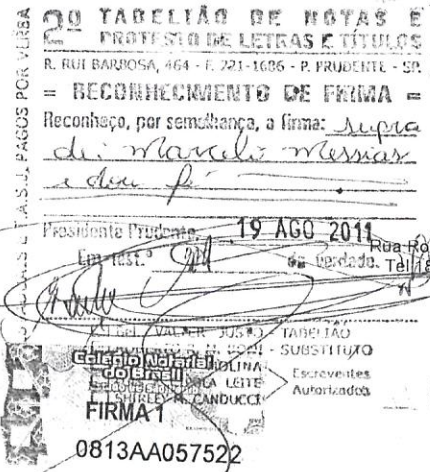 2º TABELIÃO DE NOTAS E
PROTESTO DE LETRAS E TÍTULOS
R. RUI BARBOSA, 464 - F. 221-1686 - P. PRUDENTE - SP.
= RECONHECIMENTO DE FIRMA =
Reconheço, por semelhança, a firma: supra
de: Marcelo Messias
e dou fé
Presidente Prudente, 19 AGO 2011
Em test.º da verdade.
Rua Ro
Tel
VALTER JUSTO - TABELIÃO
- SUBSTITUTO
LEITE
SHIRLEY M. CANDUCCI
Escreventes
Autorizados
Colégio Notarial
do Brasil
FIRMA 1
0813AA057522
PAGOS POR VERBA